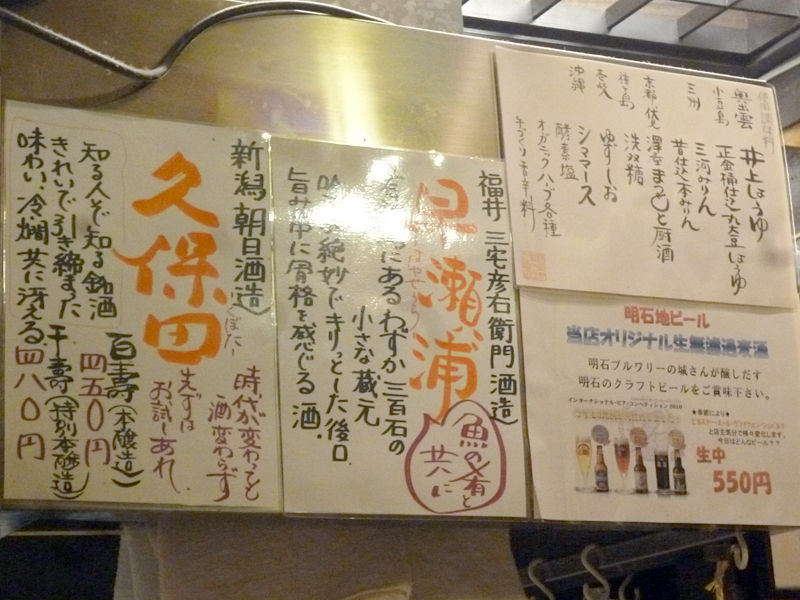 新潟 朝日酒造)
久保田
くぼたー
時代が変わっても
酒変わらず
先ずは
お試しあれ
知る人ぞ知る銘酒
きれいで引き締まった
味わい、冷燗共に冴える
百寿(本醸造)
四五〇円
千寿(特別本醸造)
四八〇円
福井 三宅彦右衛門酒造)
早瀬浦
はやせうら
にあるわずか三百石の
小さな蔵元
絶妙でキリッとした後口
旨み中に骨格を感じる酒.
魚の肴と
共に
使用調味料
奥出雲 井上しょうゆ
小豆島 正金桶仕込丸大豆しょうゆ
三州 三河みりん
昔仕込本みりん
京都伏見 澤井まろやか厨酒
種子島 洗双糖
壱岐 ゆずしお
沖縄 シママース
酵素塩
オーガニックハーブ各種
手づくり香辛料
明石地ビール
当店オリジナル生無濾過麦酒
明石ブルワリーの城さんが醸しだす
明石のクラフトビールをご賞味下さい。
インターナショナル・ビア・コンペティション 2010
★季節により★
と店主気分で種々変化します。
今日はどんなビール??
生中
550円